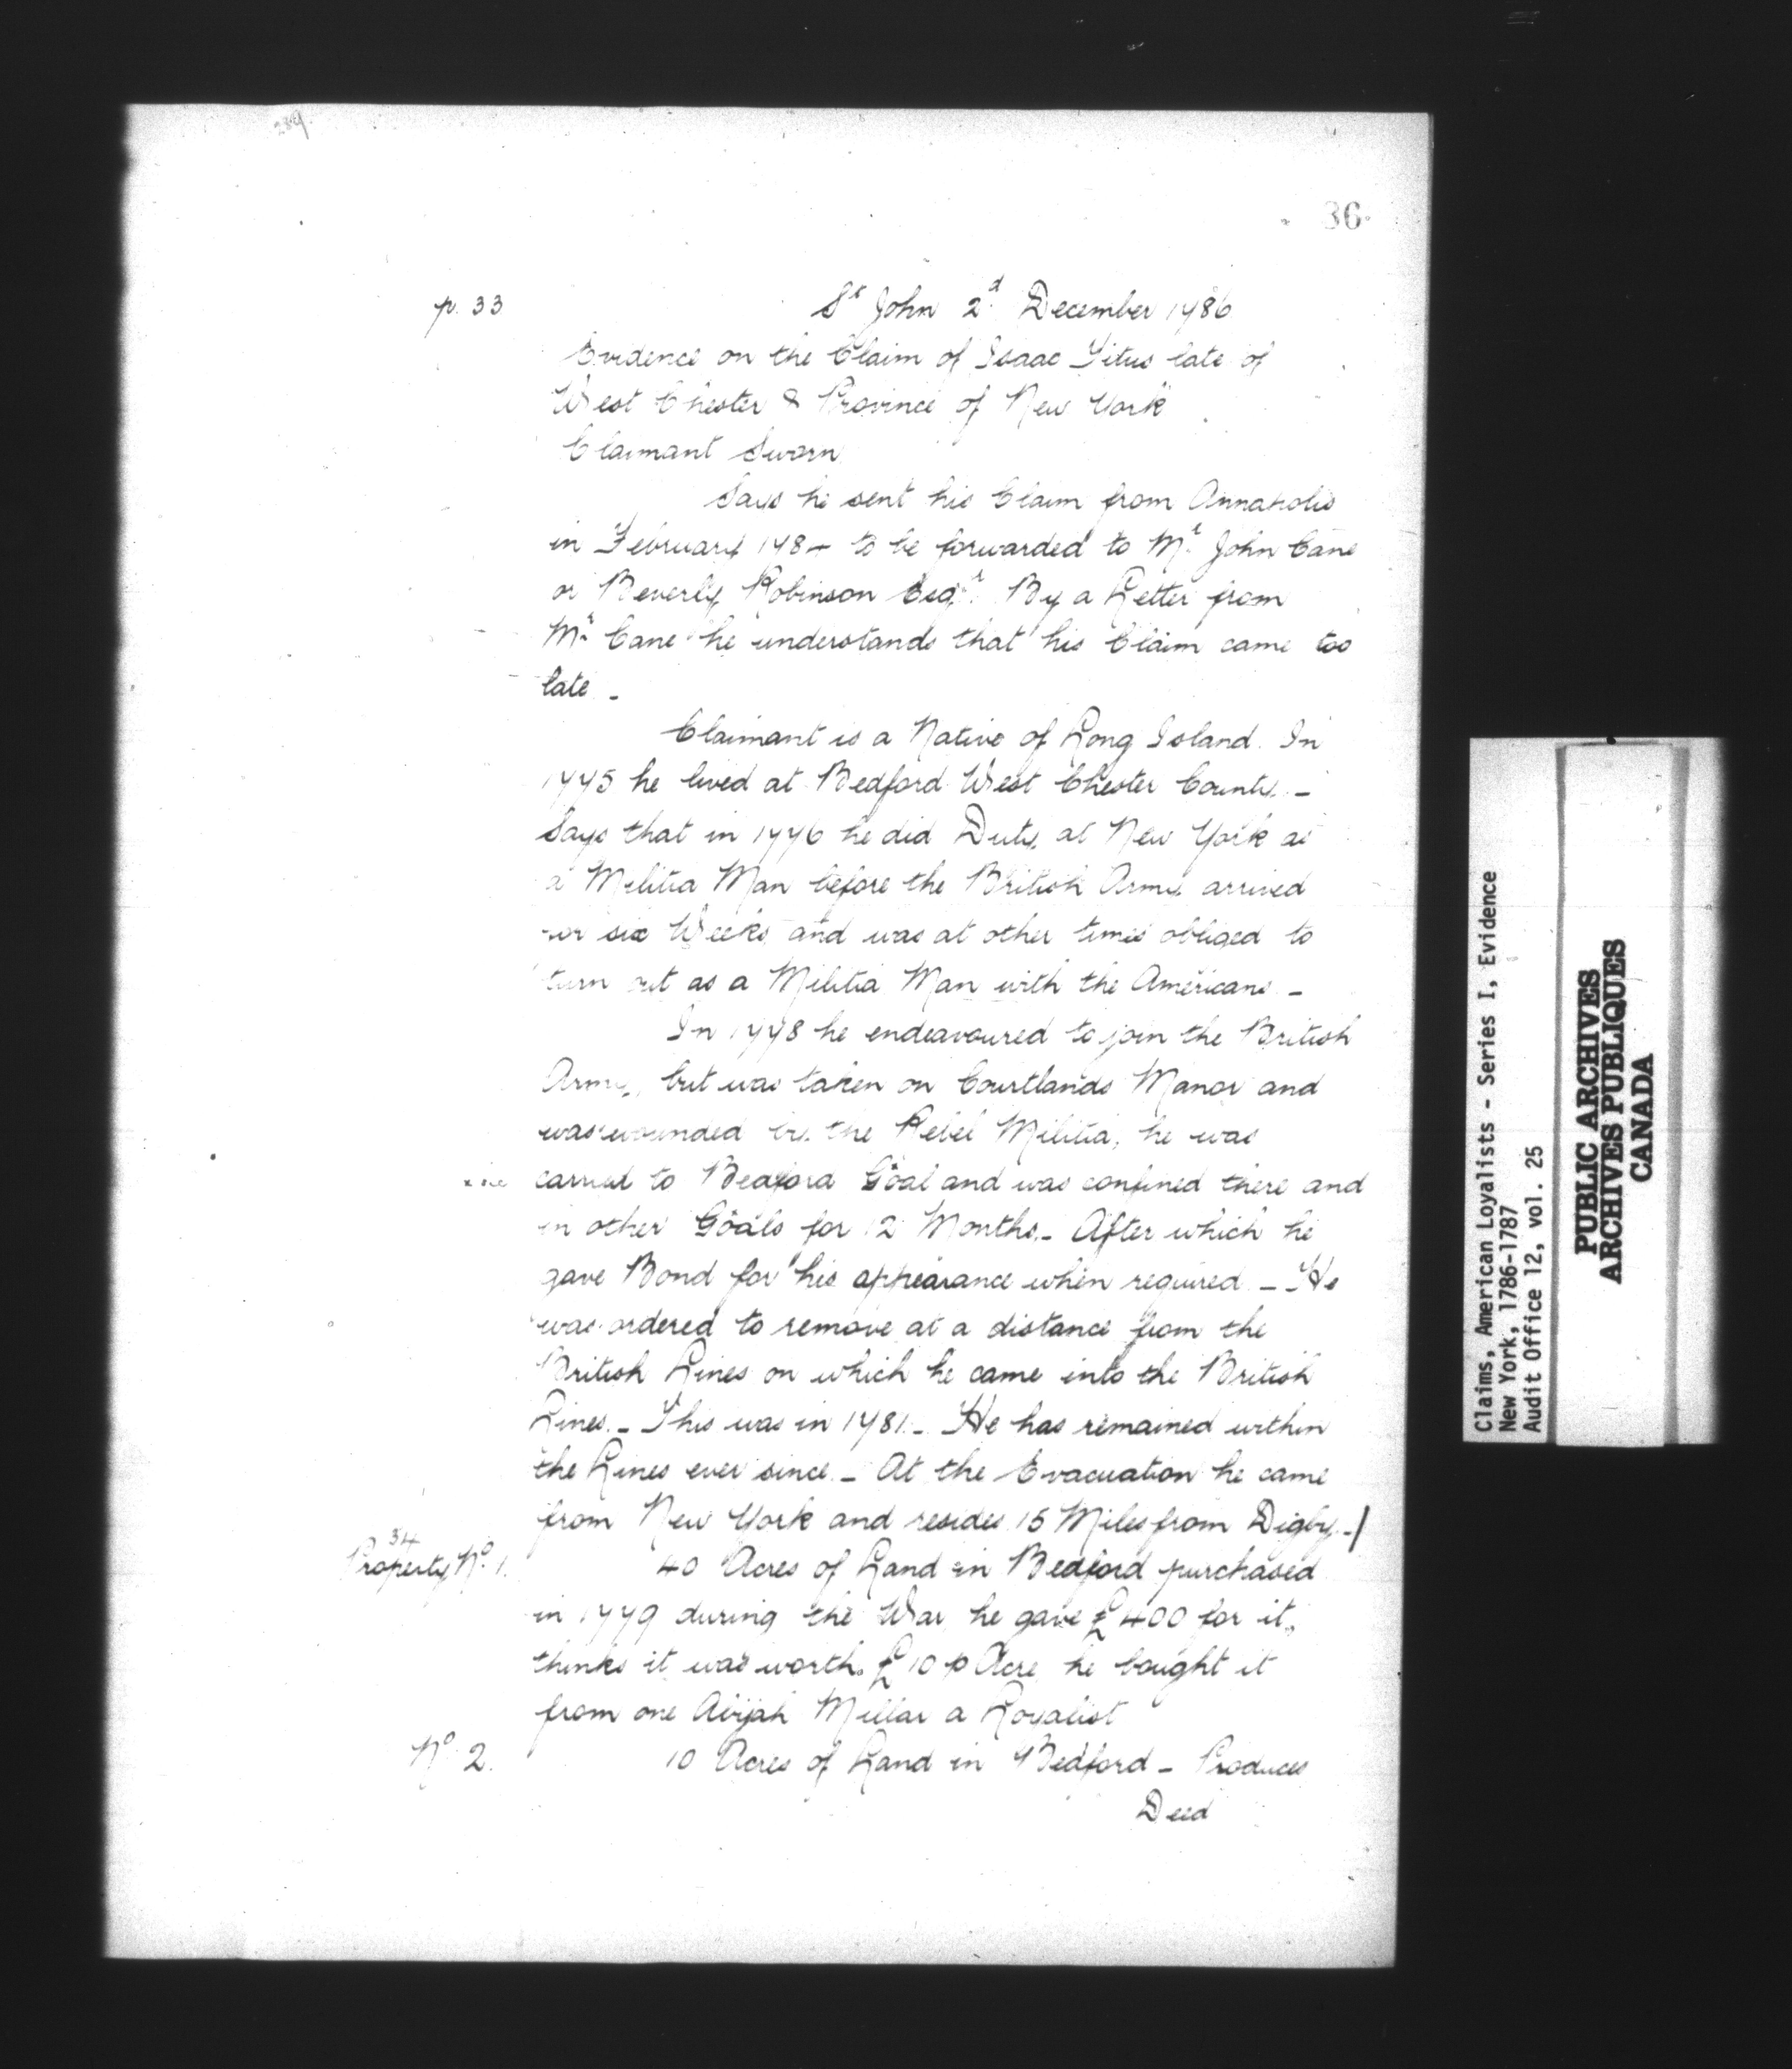 36.
p. 33
St John 2d December 1786
Evidence on the Claim of Isaac Titus late of
West Chester & Province of New York
Claimant Sworn
Says he sent his Claim from Annapolis
in February 178- to be forwarded to Mr John Cane
or Beverly Robinson Esqr. By a Letter from
Mr Cane he understands that his Claim came too
late -
Claimant is a Native of Long Island. In
1775 he lived at Bedford West Chester County. -
Says that in 1776 he did Duty at New York as
a Militia Man before the British Army arrived
for six Weeks and was at other times obliged to
turn out as a Militia Man with the Americans -
In 1778 he endeavoured to join the British
Army, but was taken on Courtlands Manor and
was wounded by the Rebel Militia, he was
carried to Bedford Goal and was confined there and
in other Goals for 12 Months. - After which he
gave Bond for his appearance when required - He
was ordered to remove at a distance from the
British Lines on which he came into the British
Lines. - This was in 1781. - He has remained within
the Lines ever since - At the Evacuation he came
from New York and resides 15 Miles from Digby -/
34
Property No. 1. 40 Acres of Land in Bedford purchased
in 1779 during the War he gave £400 for it,
thinks it was worth £10 p Acre he bought it
from one Abijah Millar a Loyalist
No. 2. 10 Acres of Land in Bedford - Produces
Deed
Claims, American Loyalists - Series I, Evidence
New York, 1786-1787
Audit Office 12, vol. 25
PUBLIC ARCHIVES
ARCHIVES PUBLIQUES
CANADA